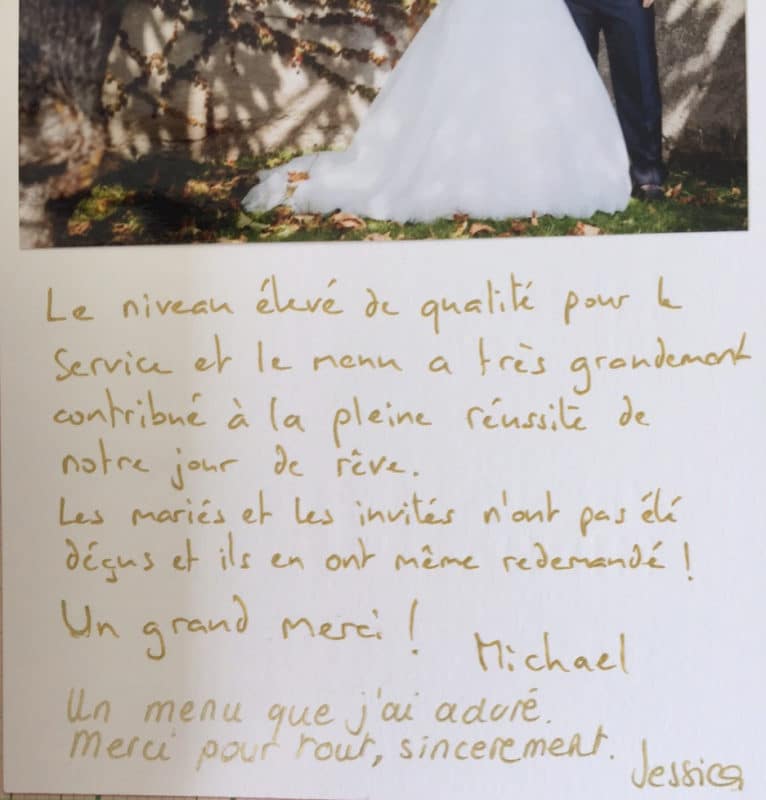 Le niveau élevé de qualité pour le
Service et le menu a très grandement
contribué à la pleine réussite de
notre jour de rêve.
Les mariés et les invités n'ont pas été
déçus et ils en ont même redemandé !
Un grand merci !
Michael
Un menu que j'ai adoré.
Merci pour tout, sincerement.
Jessica